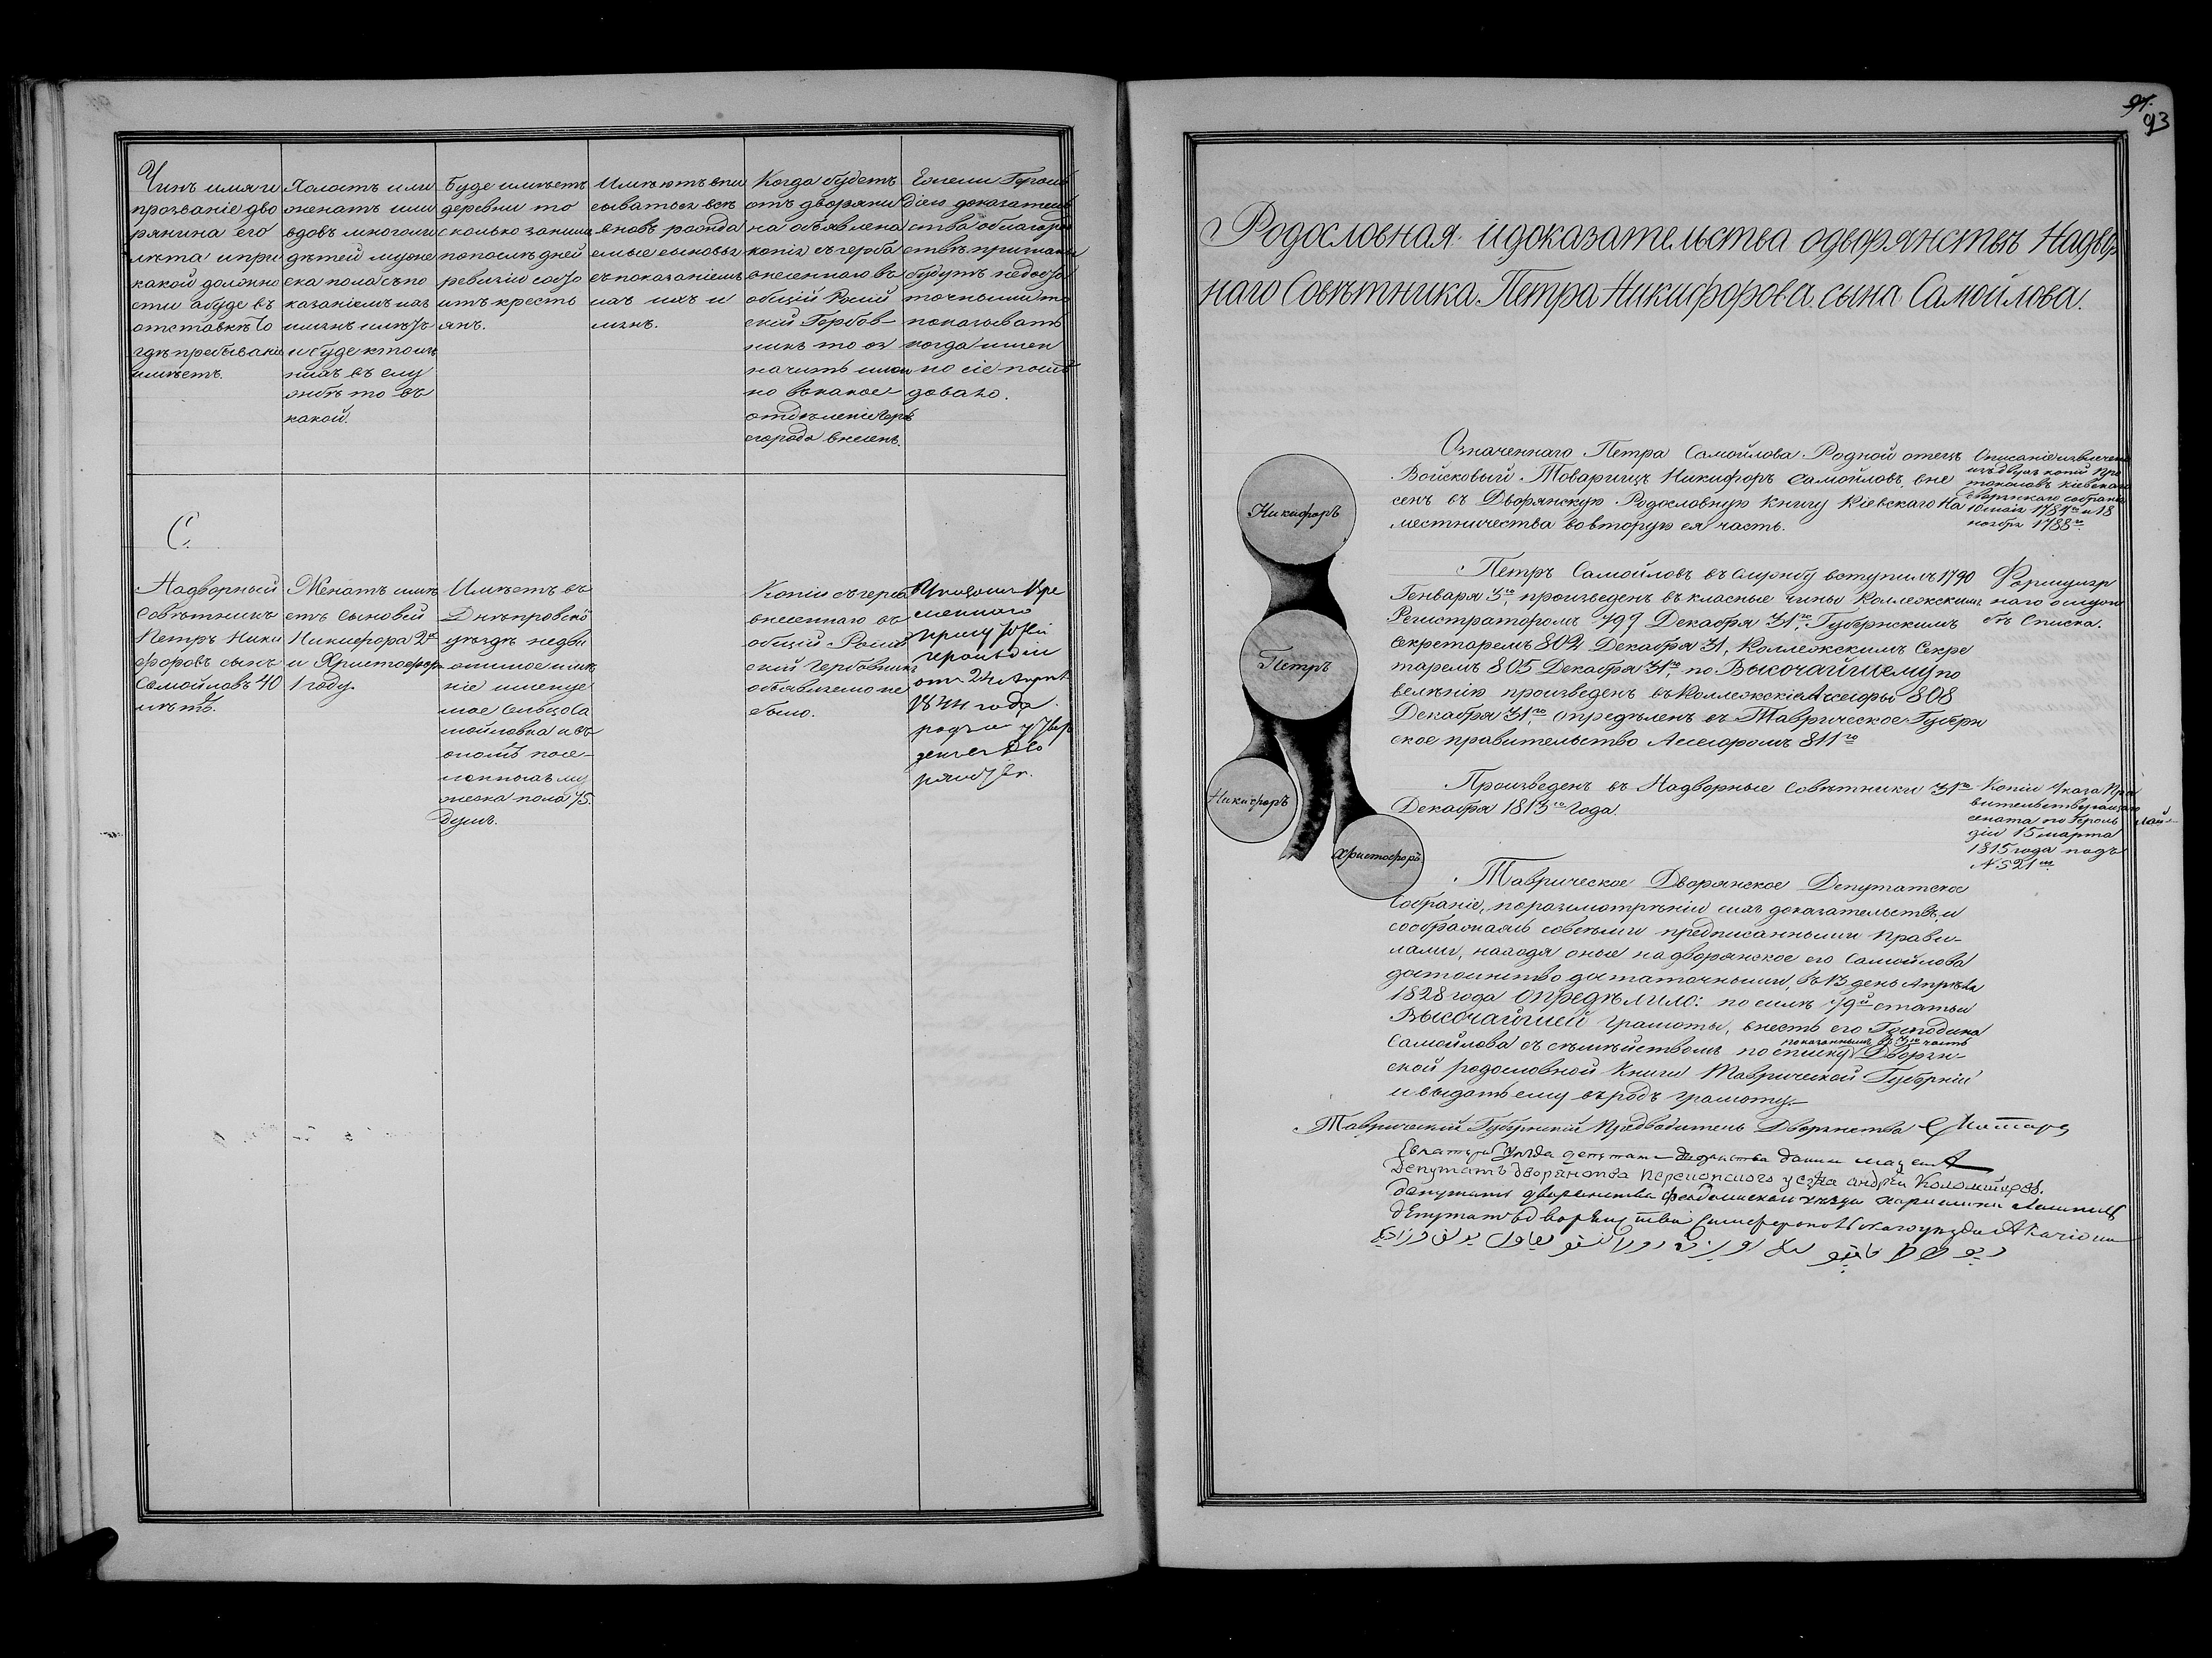 Чинъ имя и
прозваніе дво
рянина его
лѣта и при
какой должно
сти а буде въ
отставкѣ то
гдѣ пребываніе
имѣетъ.
Холостъ или
женатъ или
вдовъ многоли
дѣтей муже
ска пола съ по
казаніемъ ихъ
имянъ и
и буде кто изъ
нихъ въ слу
жбѣ то въ
какой.
Буде имѣетъ
деревни то
сколько за ними
по послѣдней
ревизіи состо
итъ кресть
янъ.
Имѣютъ впи
сываться всѣ
вновь рожда
емые сыновья
съ показаніемъ
ихъ и
имянъ.
Когда будетъ
отъ дворяни
на объявлена
копія съ герба
внесеннаго въ
общій Россій
скій Гербов-
никъ то оз
начить имян
но въ какое
отдѣленіе гербъ
его рода внесенъ.
Ежели Героль
діею доказатель
ства о благород
ствѣ признаны
будутъ недоста
точными то
показывать
когда имен
но сіе послѣ
довало.
С.
Надворный
Совѣтникъ
Петръ Ники
форовъ сынъ
Самойловъ 40
лѣтъ.
Женатъ имѣ
етъ сыновей
Никифора 2хъ
и Христофора
1 году.
Имѣетъ въ
Днѣпровско
уѣздѣ недви
жимое имѣ
ніе именуе
мое сельцо Са
мойловка и въ
ономъ посе-
ленныхъ му
жеска пола 75.
душъ.
Копіи съ герба
внесеннаго въ
общій Россій
скій Гербовникъ
объявлено не
было.
Указомъ Вре
меннаго
Присутствія
Герольдіи
отъ 24 Апрѣля
1844 года
родъ сей утвер
жденъ въ Дво
рянствѣ.
93
Родословная и доказательства о дворянствѣ Надвор
наго Совѣтника Петра Никифорова сына Самойлова.
Никифоръ
Петръ
Никифоръ
Христофоръ
Означеннаго Петра Самойлова Родной отецъ
Войсковый Товарищъ Никифоръ Самойловъ, вне
сенъ въ Дворянскую Родословную Книгу Кіевскаго На
местничества во вторую ея часть.
Описаніе извлечено
изъ двухъ копій про
токоловъ Кіевскаго
дворянскаго собранія
10 маія 1784го и 18
ноября 1788го.
Петръ Самойловъ въ службу вступилъ 1790
Генваря 3го, произведенъ въ класные чины Коллежскимъ
Регистраторомъ 799 Декабря 31го, Губернскимъ
Секретаремъ 802 Декабря 31, Коллежскимъ Секре
таремъ 805 Декабря 31го, по Высочайшему по
велѣнію произведенъ въ Коллежскіе Ассесоры 808
Декабря 31го, опредѣленъ въ Таврическое Губерн
ское правительство Ассесоромъ 811го
Формуляр
наго о служ
бѣ Списка.
Произведенъ въ Надворные Совѣтники 31го
Декабря 1813го Года.
Копіи Указа Пра
вительствующаго
сената по Героль
діи 15 марта
1815 года подъ
№ 521мъ
Таврическое Дворянское Депутатское
Собраніе, по разсмотрѣніи сихъ доказательствъ, и
сообразнаясь со всѣми предписанными прави-
лами, находя оные на дворянское его Самойлова
достоинство достаточными, въ 13 день Апрѣля
1828 года опредѣлило: по силѣ 79й статьи
Высочайшей грамоты, внесть его Господина
Самойлова съ семѣйствомъ по списку показаннымъ въ 3ю часть Дворян-
ской родословной Книги Таврической Губерніи
и выдать ему въ родъ грамоту.
Таврическій Губернскій Предводитель Дворянства
депутатъ дворянства
Депутатъ дворянства Перекопского уезда андрей Коломийцов.
депутатъ дворянства Феодосийскаго уезда
депутатъ дворянства Симферопольскаго уезда